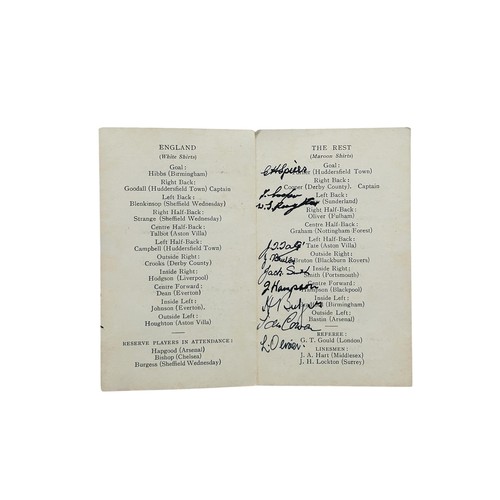 ENGLAND
(White Shirts)
Goal:
Hibbs (Birmingham)
Right Back:
Goodall (Huddersfield Town) Captain
Left Back:
Blenkinsop (Sheffield Wednesday)
Right Half-Back:
Strange (Sheffield Wednesday)
Centre Half-Back:
Talbot (Aston Villa)
Left Half-Back:
Campbell (Huddersfield Town)
Outside Right:
Crooks (Derby County)
Inside Right:
Hodgson (Liverpool)
Centre Forward:
Dean (Everton)
Inside Left:
Johnson (Everton).
Outside Left:
Houghton (Aston Villa)
RESERVE PLAYERS IN ATTENDANCE:
Hapgood (Arsenal)
Bishop (Chelsea)
Burgess (Sheffield Wednesday)
THE REST
(Maroon Shirts)
Goal:
(Huddersfield Town)
Right Back:
Cooper (Derby County). Captain
Left Back:
(Sunderland)
Right Half-Back:
Oliver (Fulham)
Centre Half-Back:
Graham (Nottingham Forest)
Left Half-Back:
Tate (Aston Villa)
Outside Right:
Bruton (Blackburn Rovers)
Inside Right:
Smith (Portsmouth)
Jack Smith
Centre Forward:
(Blackpool)
J Hampson
Inside Left:
(Birmingham)
Outside Left:
Bastin (Arsenal)
L. Oliver.
REFEREE:
G. T. Gould (London)
LINESMEN:
J. A. Hart (Middlesex)
J. H. Lockton (Surrey)